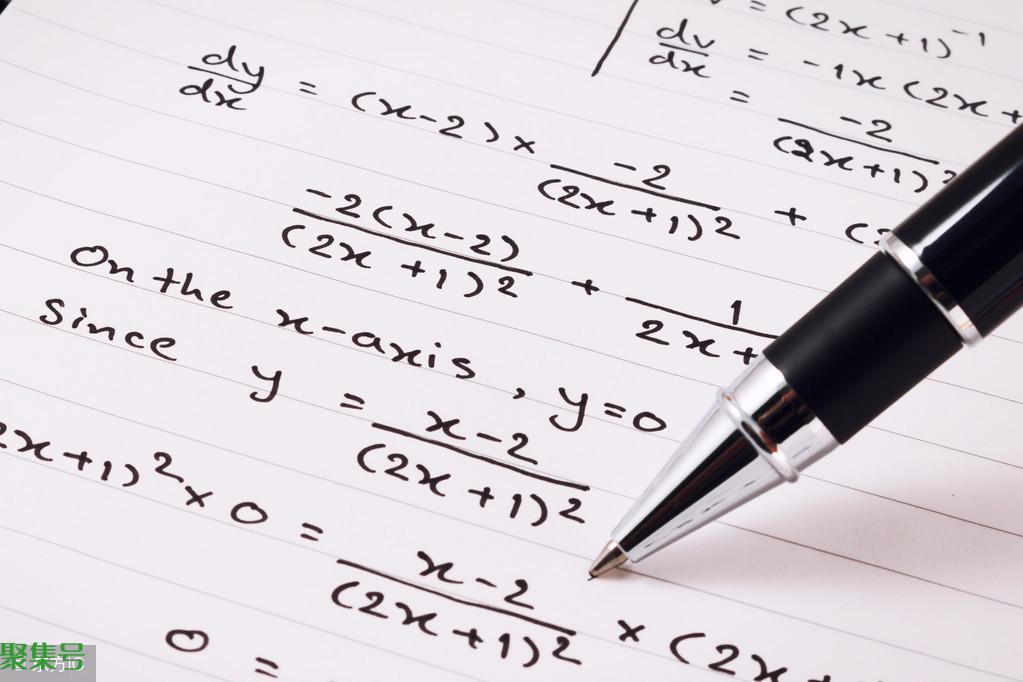 v = (2x+1)^-1
dv/dx = -1x(2x+
= -2/(2x+1)²
dy/dx = (x-2) x -2/(2x+1)² + (2
-2(x-2)/(2x+1)² + 1/2x+
On the x-axis, y=0
Since y = x-2/(2x+1)²
2x+1)² x 0 = x-2/(2x+1)² x (2x+
0 =
聚集号